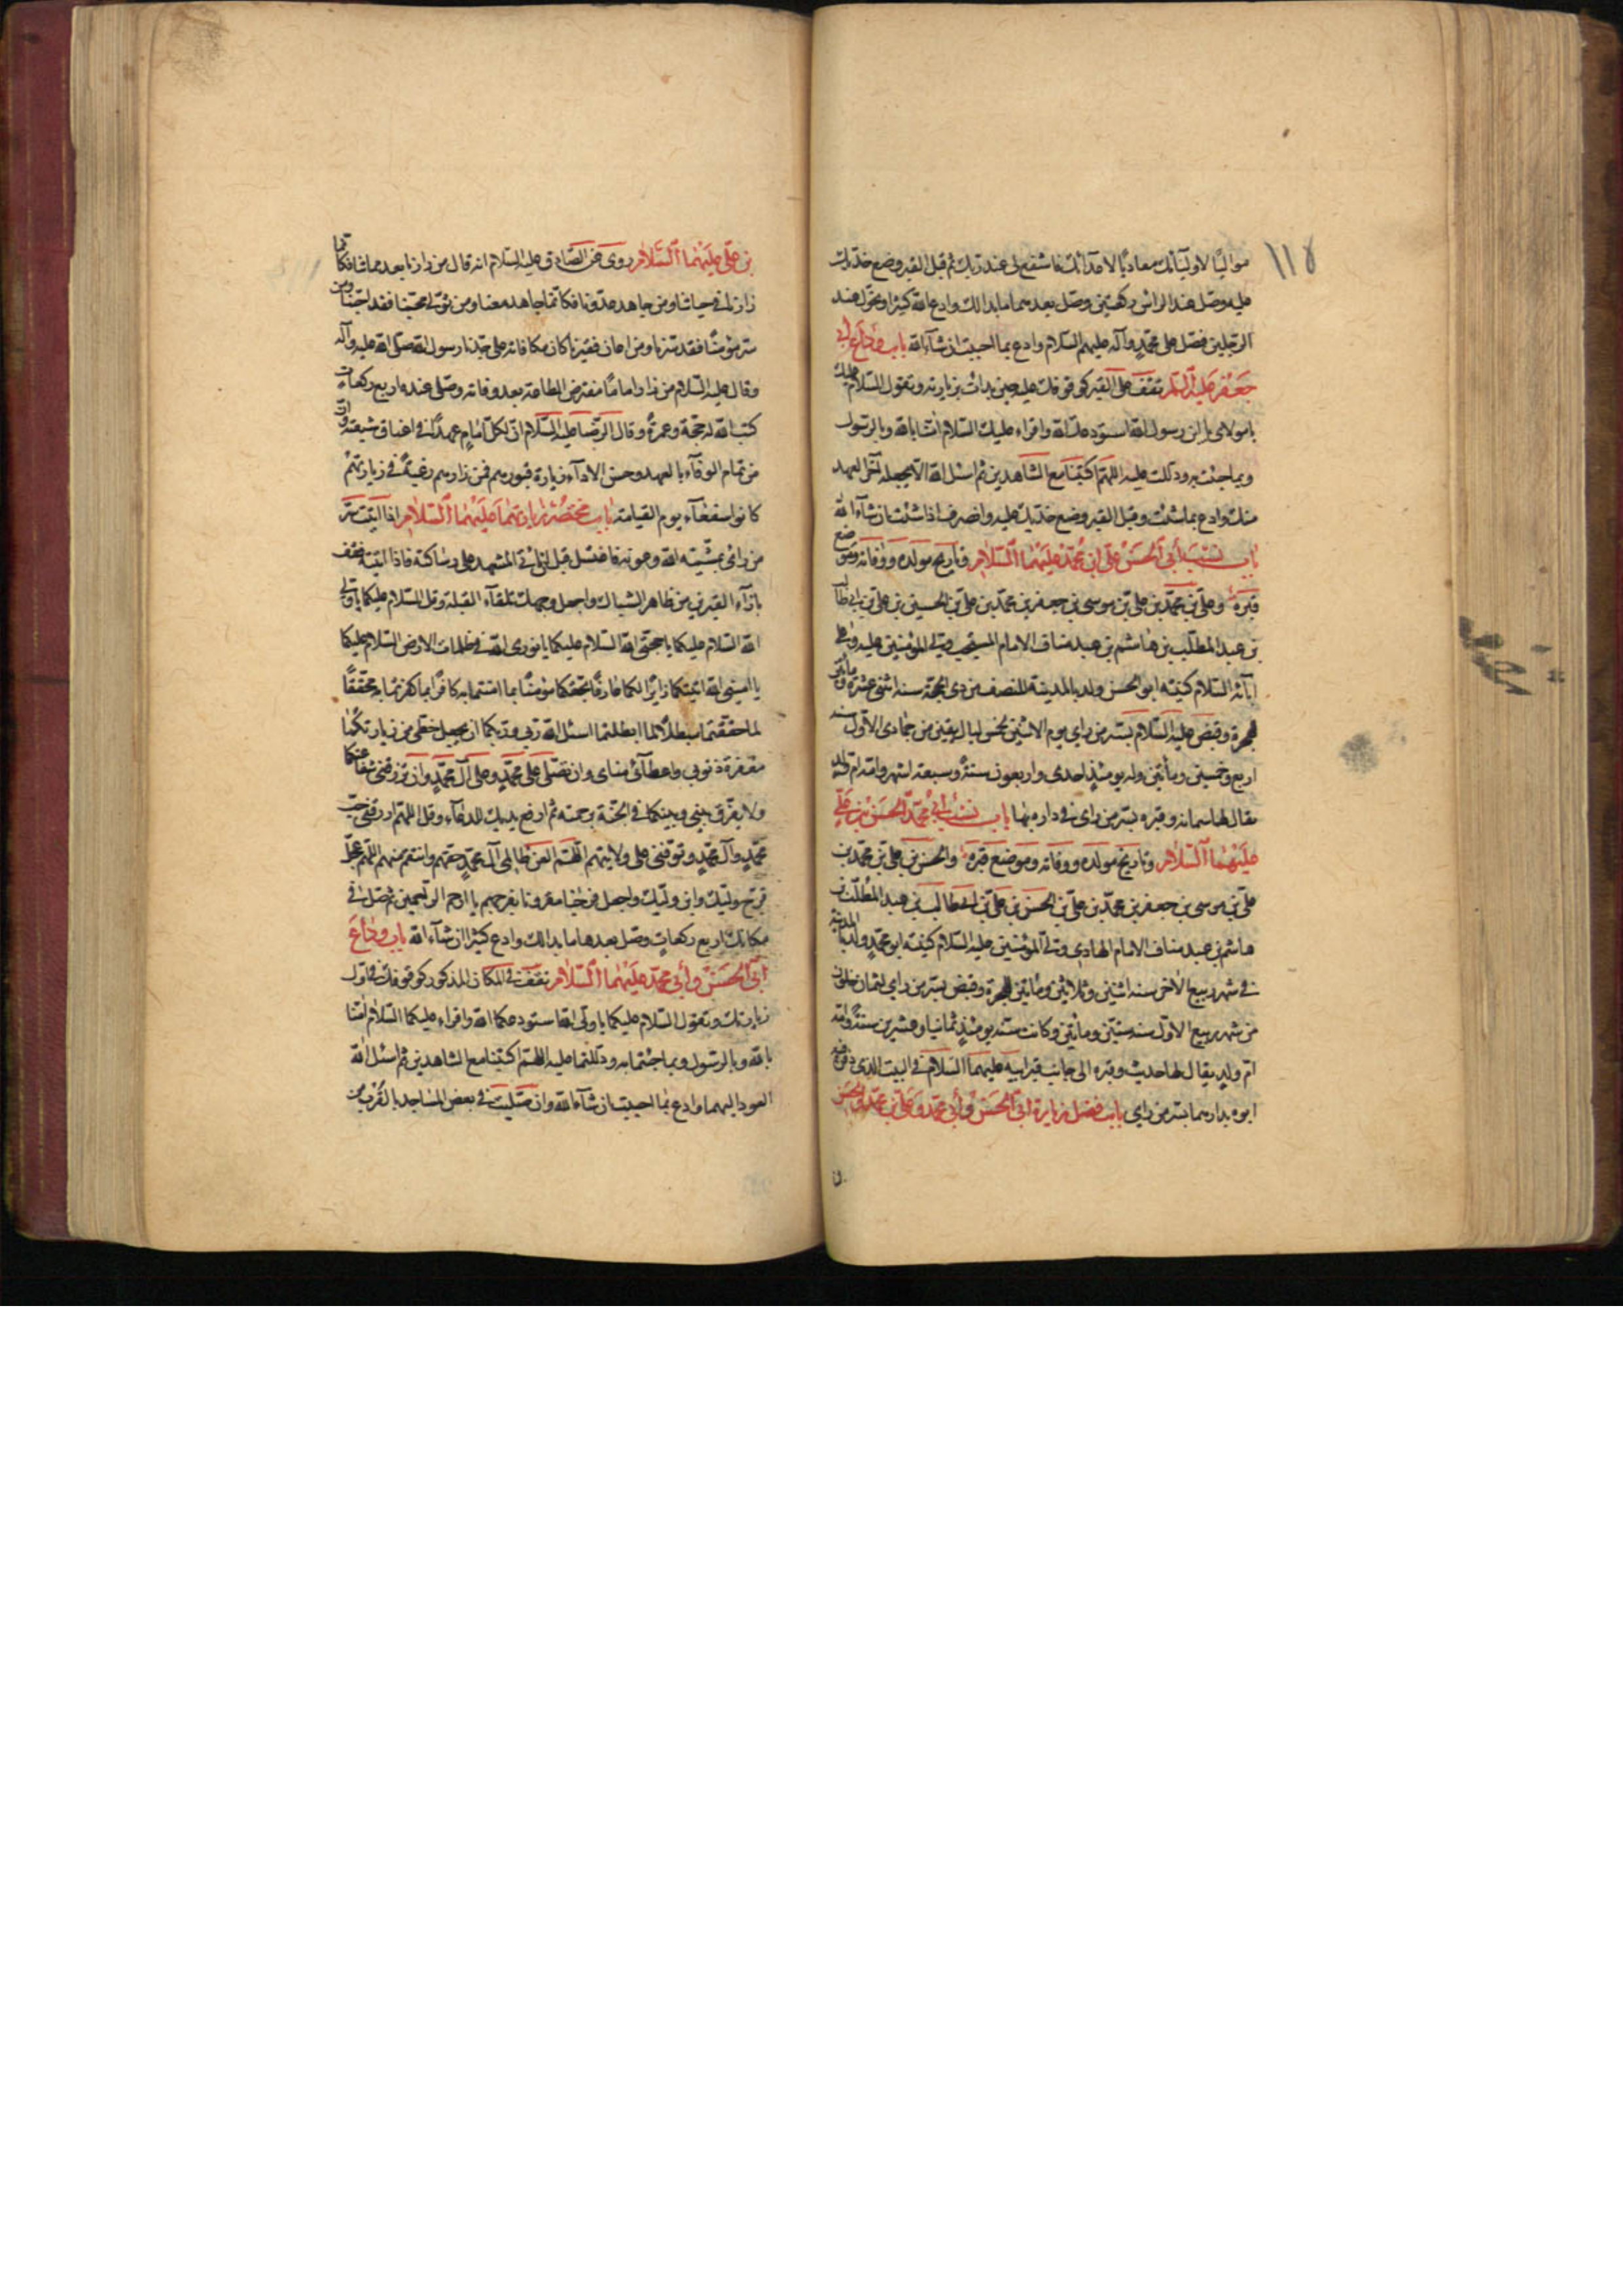 ١١٨
مواليًا لاوليآئك معاديًا لاعدآئك فاشفع لى عند ربك ثم قبل القبر وضع خديك
عليه وصل عند الراس ركعتين وصل بعدهما ما بدالك وادع الله كثيرا وتحول عند
الرجلين فصل على محمد وآله عليهم السلام وادع بما احببت ان شآء الله باب وداع ابى
جعفر عليه السلم تقف على القبر كوقوفك عليه حين بدات بزيارته وتقول السلام عليك
يا مولاى يا ابن رسول الله استودعك الله واقراء عليك السلام امنا بالله وبالرسول
وبما جئت به ودللت عليه اللهم اكتبنا مع الشاهدين ثم اسئل الله الا يجعله آخر العهد
منك وادع بما شئت وقبل القبر وضع خديك عليه وانصرف اذا شئت ان شآء الله
باب نسب أبى الحسن على ابن محمد عليهما السلام وتاريخ مولده ووفاته وموضع
قبره وعلى بن محمد بن على بن موسى بن جعفر بن محمد بن على بن الحسين بن على بن ابى طالب
بن عبد المطلب بن هاشم بن عبد مناف الامام المنتجب ولى المؤمنين عليه وعلى
ابآئه السلام كنيته ابو الحسن ولد بالمدينة للنصف من ذى الحجة سنه اثنى عشرة ومأتين
هجرة وقبض عليه السلام بسر من راى يوم الاثنين لخمس ليال بقين من جمادى الاول سنه
اربع وخمسين ومأتين وله يومئذ احدى واربعون سنة وسبعة اشهر وامه ام ولد
يقال لها سمانه وقبره بسر من راى فى داره بها باب نسب ابى محمد الحسن بن على
عليهما السلام وتاريخ مولده ووفاته وموضع قبره والحسن بن على بن محمد بن
على بن موسى بن جعفر بن محمد بن على بن الحسن بن على بن ابى طالب بن عبد المطلب بن
هاشم بن عبد مناف الامام الهادى ولى المؤمنين عليه السلام كنيته ابو محمد ولد بالمدينة
فى شهر ربيع الاخر سنه اثنين وثلاثين ومأتين هجرة وقبض بسر من راى لثمان خلون
من شهر ربيع الاول سنه ستين ومأتين وكانت سنه يومئذ ثمانيا وعشرين سنة وامه
ام ولد يقال لها حديث وقبره الى جانب قبر ابيه عليهما السلام فى البيت الذى دفن فيه
ابوه بدارهما بسر من راى باب فضل زيارة ابى الحسن وأبى محمد وعلى بن محمد والحسن
بن على عليهما السلام روى عن الصادق عليه السلام انه قال من زارنا بعد مماتنا فكانما
زارنا فى حياتنا ومن جاهد عدونا فكانما جاهد معنا ومن تولى محبنا فقد احبنا ومن
سر مؤمنًا فقد سرنا ومن اعان فقيرنا كان مكافاته على جدنا رسول الله صلى الله عليه وآله
وقال عليه السلام من زار اماما مفترض الطاعة بعد وفاته وصلى عنده اربع ركعات
كتب الله له حجة وعمرة وقال الرضا عليه السلام ان لكل امام عهدا فى اعناق شيعته وان
من تمام الوفآء بالعهد وحسن الادآء زيارة قبورهم فمن زارهم رغبة فى زيارتهم
كانوا شفعآء يوم القيامة باب مختصر زيارتهما عليهما السلام اذا اتيت سر
من راى بمشيته الله وعونه فاغتسل قبل اتيانى المشهد على ساكنه فاذا اتيته فقف
بازآء القبرين من ظاهر الشباك واجعل وجهك تلقآء القبلة وقل السلام عليكما يا وليى
الله السلام عليكما يا حجتى الله السلام عليكما يا نورى الله فى ظلمات الارض السلام عليكما
يا امينى الله اتيتكما زائرا لكما عارفا بحقكما مؤمنا بما امنتما به كافرا بما كفرتما به محققا
لما حققتما مبطلا لما ابطلتما اسئل الله ربى وربكما ان يجعل حظى من زيارتكما
مغفرة ذنوبى واعطآئى مناى وان تصلى على محمد وعلى آل محمد وان ترزقنى شفاعتكما
ولا يفرق بينى وبينكما فى الجنة برحمته ثم ارفع يديك للدعآء وقل اللهم ارزقنى حب
محمد وآل محمد وتوفنى على ولايتهم اللهم العن ظالمى آل محمد حقهم وانتقم منهم اللهم عجل
فرج وليك وابن وليك واجعل فرجنا مقرونا بفرجهم يا ارحم الراحمين ثم صل فى
مكانك اربع ركعات وصل بعدها ما بدالك وادع كثيرا ان شآء الله باب وداع
أبى الحسن وأبى محمد عليهما السلام تقف فى المكان المذكور كوقوفك فى اول
زيارتك وتقول السلام عليكما يا وليى الله استودعكما الله واقراء عليكما السلام امنا
بالله وبالرسول وبما جئتما به ودللتما عليه اللهم اكتبنا مع الشاهدين ثم اسئل الله
العود اليهما وادع بما احببت ان شآء الله وان صليت فى بعض المساجد بالقرب من